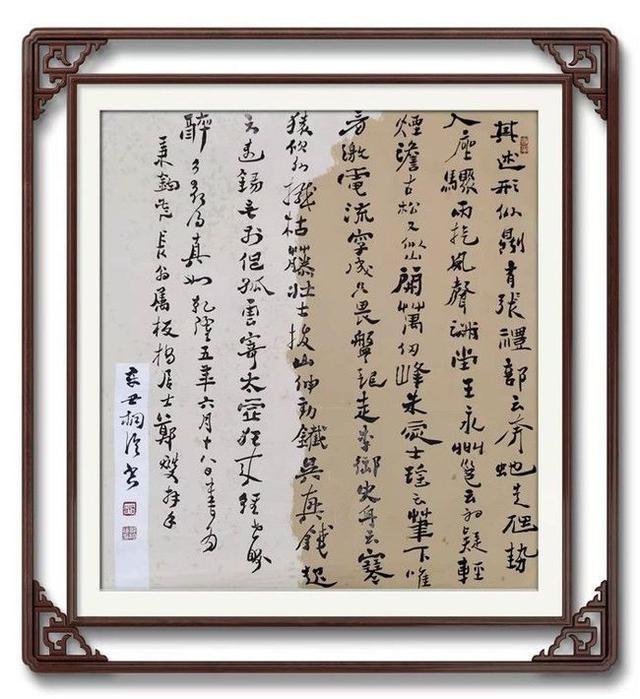 其述形似則有張禮部云奔蛇走虺勢
入座驟雨旋風聲滿堂王永州邕云初疑輕
煙澹古松又似山開萬仞峰朱處士遥云筆下唯
看激電流字成只畏盤龍走李御史舟云寒
猿飲水撼枯藤壯士拔山伸勁鐵吳興錢起
云遠錫無前侶孤雲寄太虛狂來輕世界
醉里得真如乾隆五年六月十八日書為
秉鈞長翁屬板橋居士鄭燮拜手
辛丑桐書